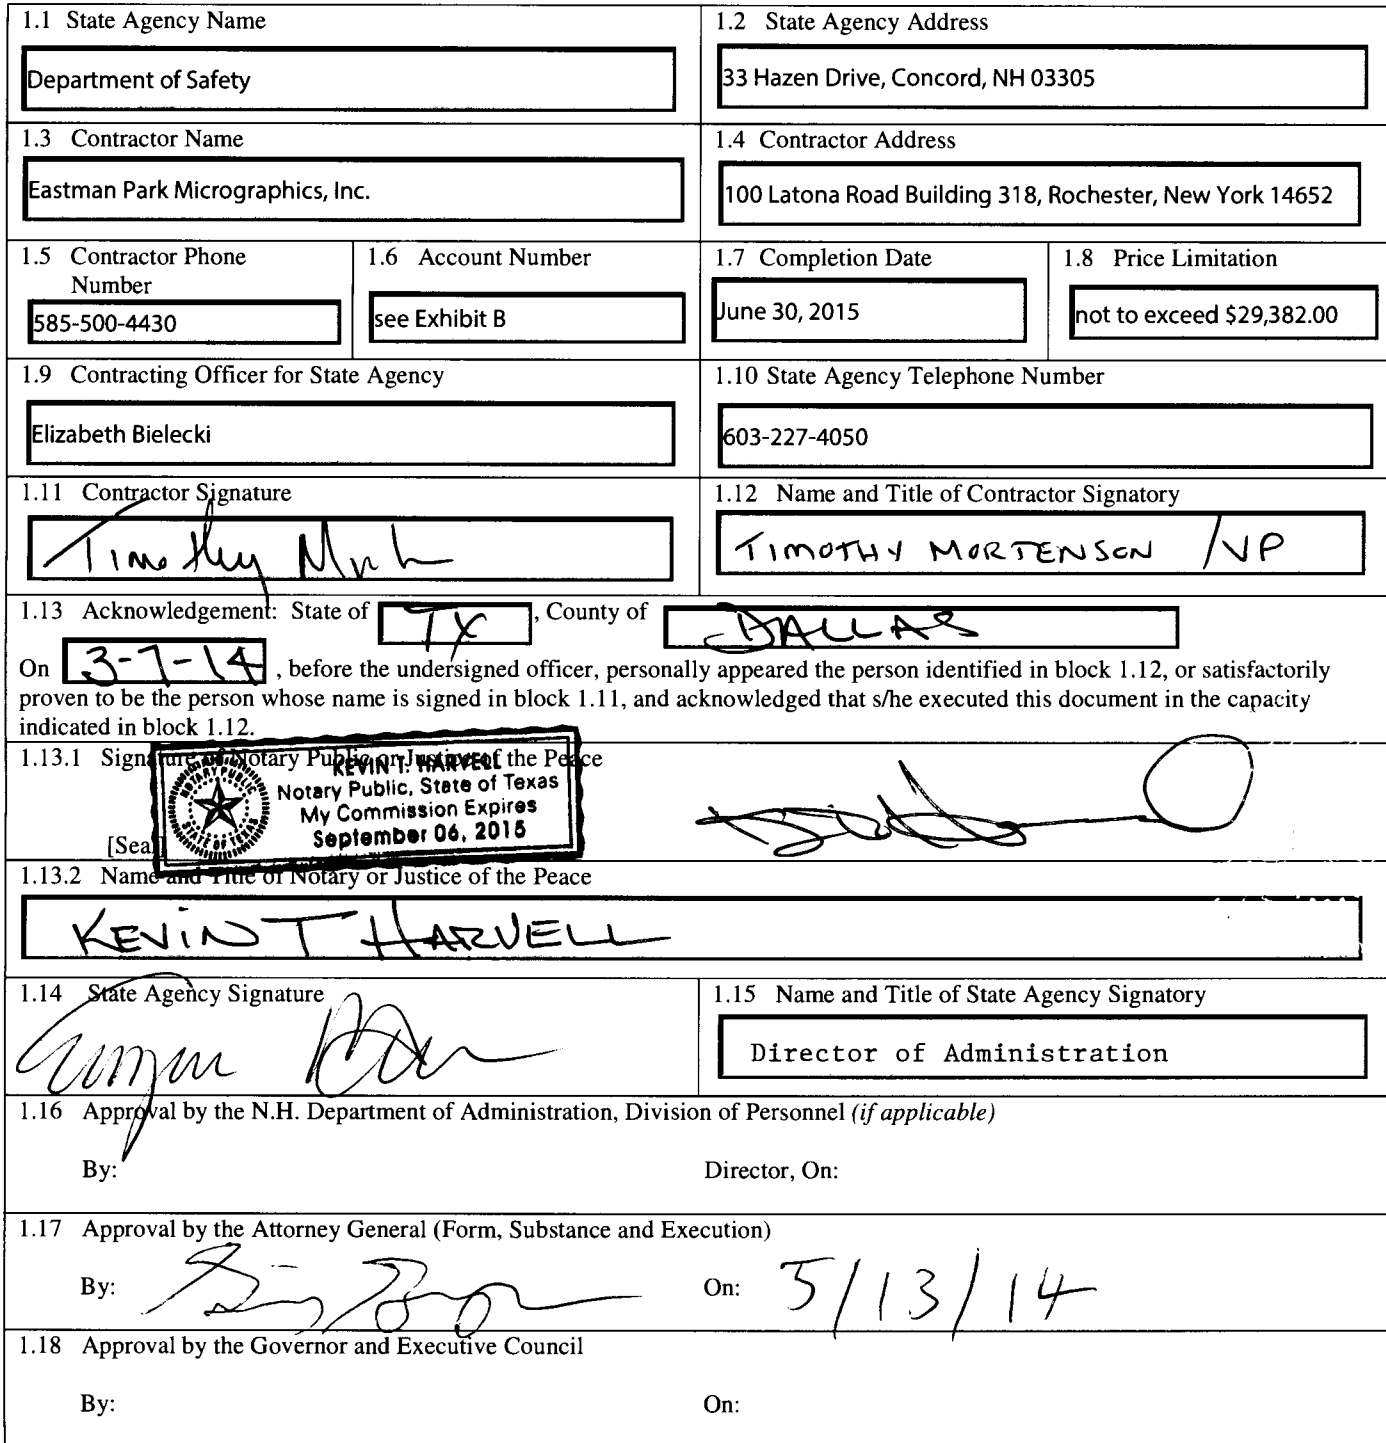 1.1 State Agency Name
Department of Safety
1.2 State Agency Address
33 Hazen Drive, Concord, NH 03305
1.3 Contractor Name
Eastman Park Micrographics, Inc.
1.4 Contractor Address
100 Latona Road Building 318, Rochester, New York 14652
1.5 Contractor Phone
Number
585-500-4430
1.6 Account Number
see Exhibit B
1.7 Completion Date
June 30, 2015
1.8 Price Limitation
not to exceed $29,382.00
1.9 Contracting Officer for State Agency
Elizabeth Bielecki
1.10 State Agency Telephone Number
603-227-4050
1.11 Contractor Signature
Timothy
1.12 Name and Title of Contractor Signatory
TIMOTHY MORTENSON / VP
1.13 Acknowledgement: State of TX, County of DALLAS
On 3-7-14, before the undersigned officer, personally appeared the person identified in block 1.12, or satisfactorily
proven to be the person whose name is signed in block 1.11, and acknowledged that s/he executed this document in the capacity
indicated in block 1.12.
1.13.1 Signature of Notary Public or Justice of the Peace
KEVIN T. HARVELL
Notary Public, State of Texas
My Commission Expires
September 06, 2015
NOTARY PUBLIC
STATE OF TEXAS
[Seal]
1.13.2 Name and Title of Notary or Justice of the Peace
KEVIN T HARVELL
1.14 State Agency Signature
1.15 Name and Title of State Agency Signatory
Director of Administration
1.16 Approval by the N.H. Department of Administration, Division of Personnel (if applicable)
By: Director, On:
1.17 Approval by the Attorney General (Form, Substance and Execution)
By: On: 5/13/14
1.18 Approval by the Governor and Executive Council
By: On: